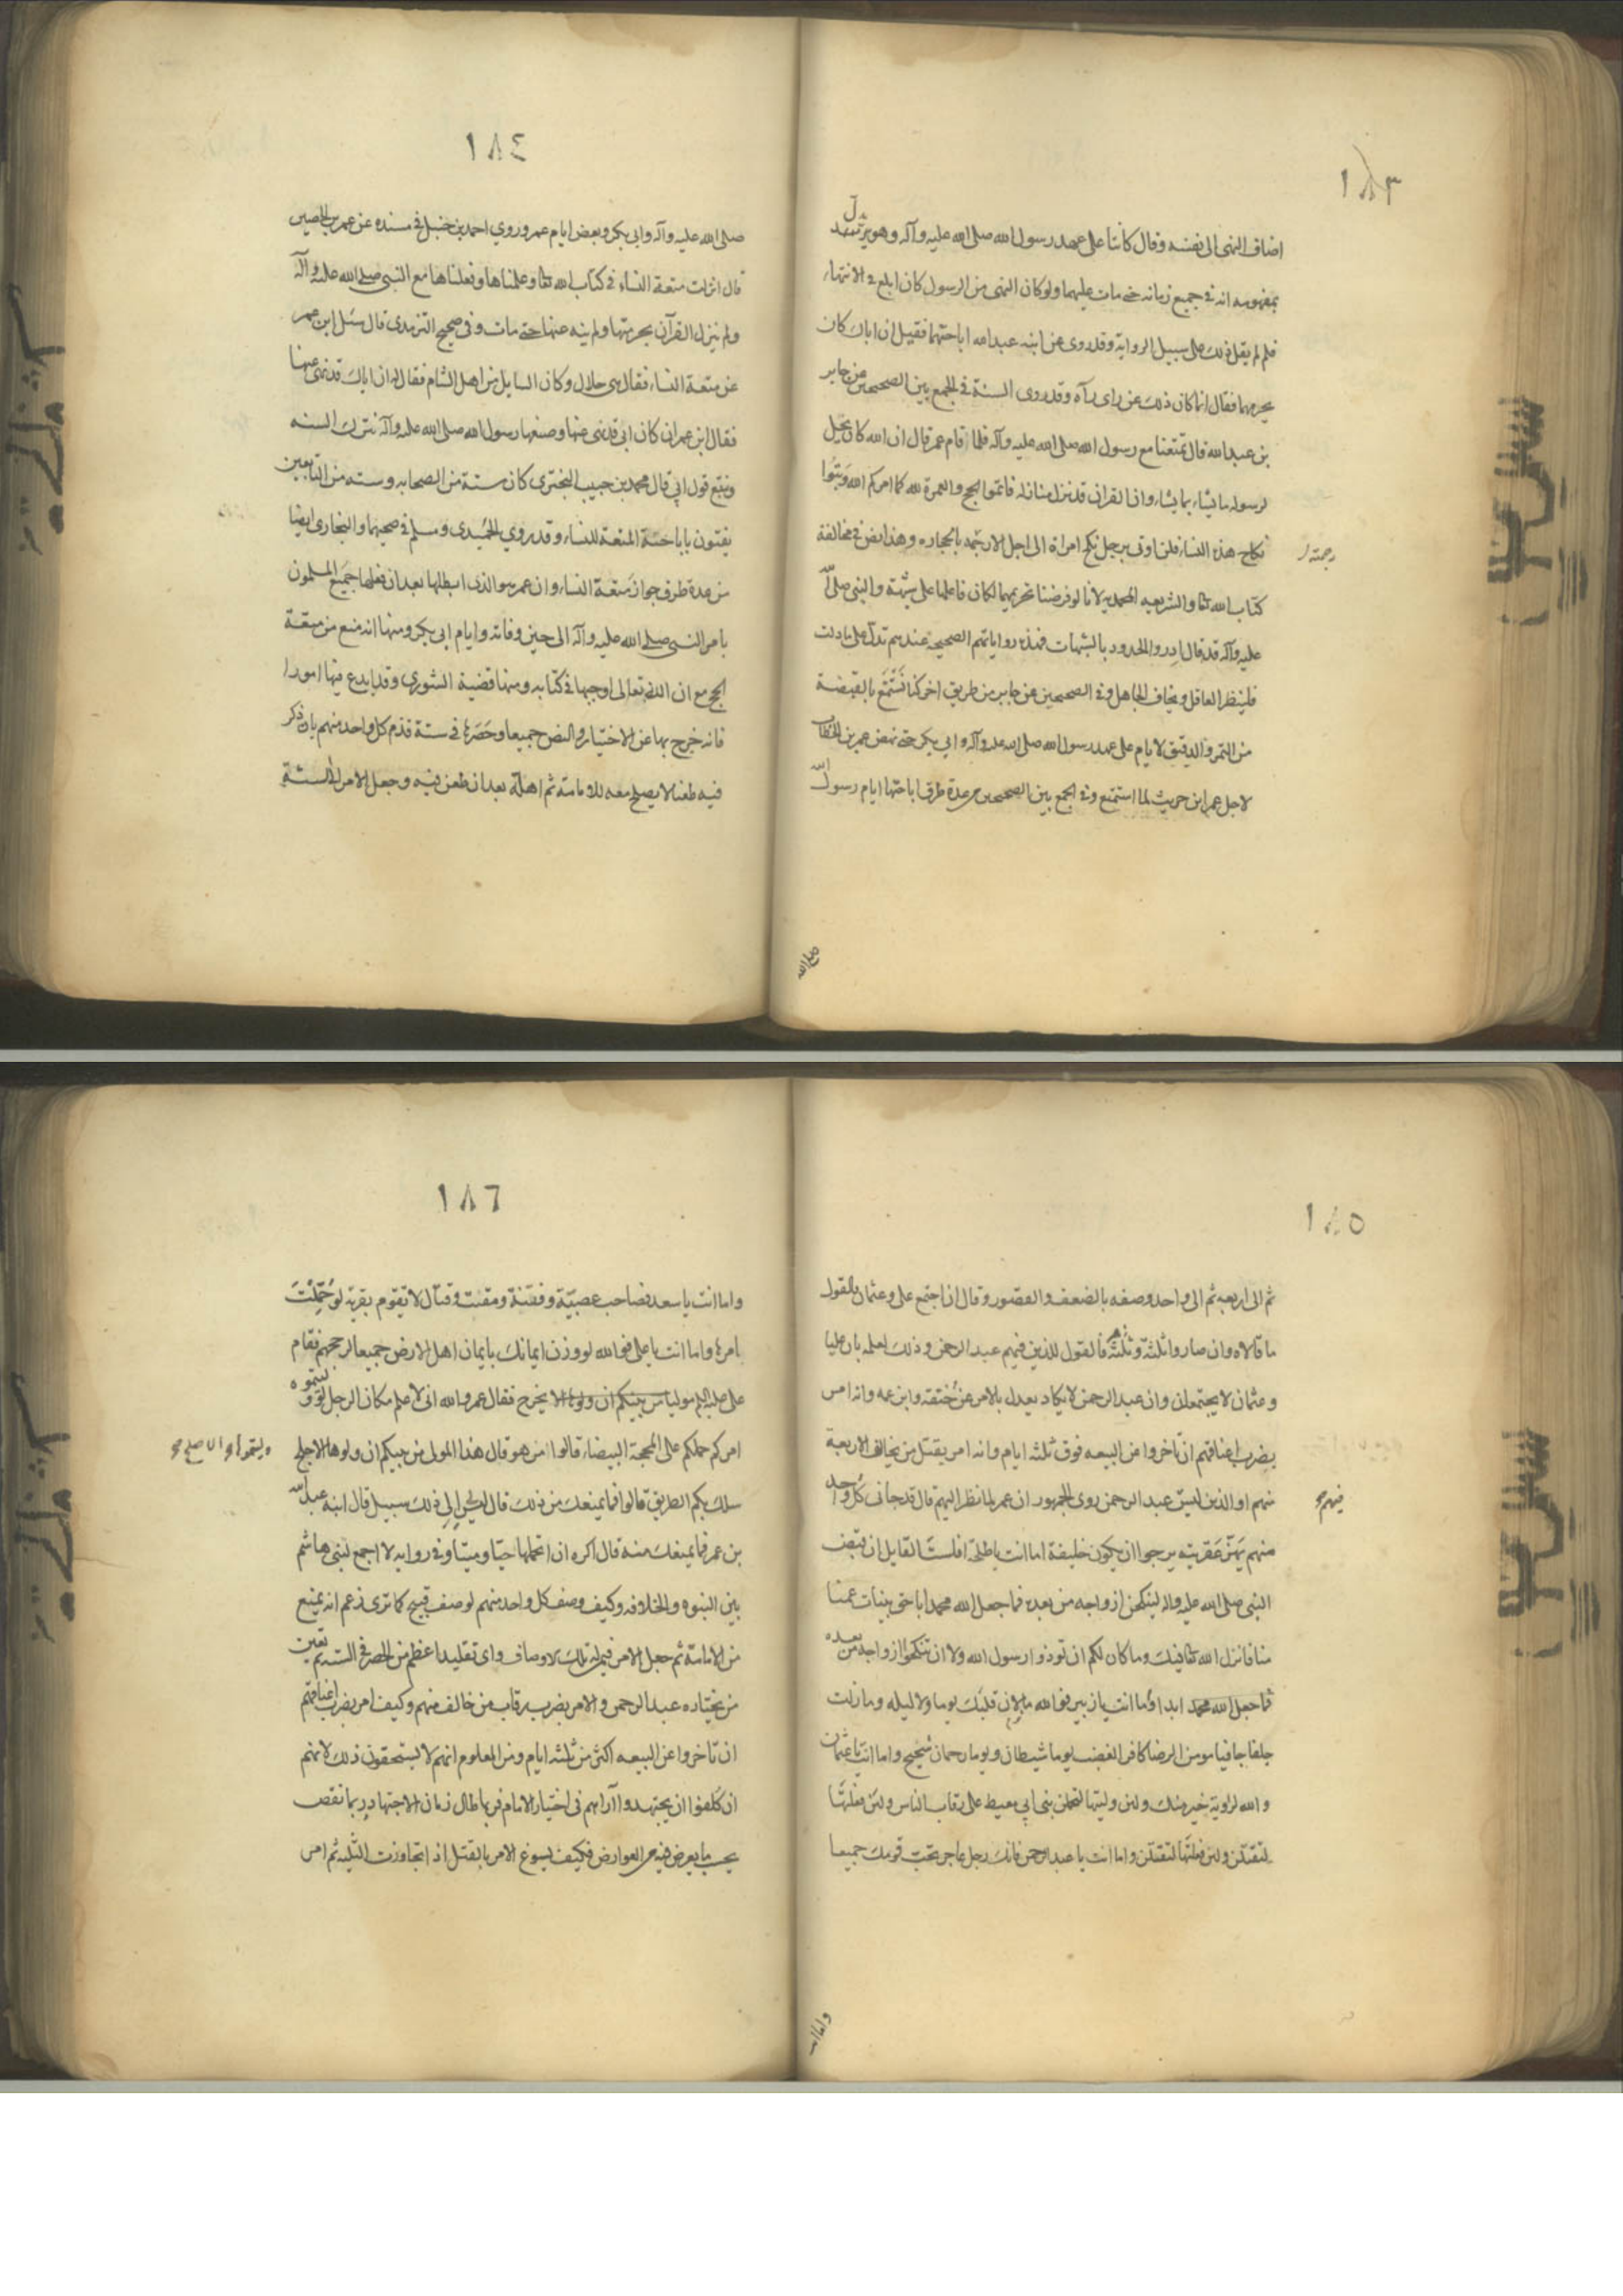 ١٨٣
اضاف النهى الى نفسه وقال كانتا على عهد رسول الله صلى الله عليه وآله وهو يدل
بمفهومه انه في جميع زمانه حتى مات عليهما ولو كان النهى من الرسول كان ابلغ في الانتهاء
فلم لم يقل ذلك على سبيل الرواية وقد روى عن ابنه عبد الله اباحتهما فقيل ان اباك كان
يحرمهما فقال انما كان ذلك عن راى رآه وقد روى السنة في الجمع بين الصحيحين عن جابر
بن عبد الله قال تمتعنا مع رسول الله صلى الله عليه وآله فلما قام عمر قال ان الله كان يحل
لرسوله ما يشاء بما يشاء وان القران قد نزل منازله فاتموا الحج والعمرة لله كما امركم الله وبتوا
نكاح هذه النساء فلن اوتى برجل نكح امراة الى اجل الا رجمته بالحجارة وهذا نص في مخالفة
رجمته
كتاب الله تعا والشريعه المحمديه لانا لو فرضنا تحريمهما لكان فاعلها على شبهة والنبى صلى الله
عليه وآله قد قال ادروا الحدود بالشبهات فهذه رواياتهم الصحيحة عندهم تدل على ما دلت
فلينظر العاقل ويخاف الجاهل وفي الصحيحين عن جابر من طريق اخر كنا نستمتع بالقبضة
من التمر والدقيق الايام على عهد رسول الله صلى الله عليه وآله وابى بكر حتى نهض عمر بن الخطاب
لاجل عمر ابن حريث لما استمتع وفي الجمع بين الصحيحين من عدة طرق اباحتها ايام رسول الله
صلى الله
١٨٤
صلى الله عليه وآله وابى بكر وبعض ايام عمر وروي احمد بن حنبل في مسنده عن عمر بن الحصين
قال انزلت متعة النساء في كتاب الله تعا وعلمناها وفعلناها مع النبى صلى الله عليه وآله
ولم ينزل القرآن بحرمتها ولم ينه عنها حتى مات وفى صحيح الترمدى قال سئل ابن عمر
عن متعة النساء فقال هى حلال وكان السايل من اهل الشام فقال له ان اباك قد نهى عنها
فقال ابن عمر ان كان ابى قد نهى عنها وصنعها رسول الله صلى الله عليه وآله نترك السنه
ونتبع قول ابى قال محمد بن حبيب البختري كان ستة من الصحابه وسته من التابعين
يفتون باباحة المتعة للنساء وقد روي الحميدى ومسلم في صحيحهما والبخارى ايضا
من عدة طرق جواز متعة النساء وان عمر هو الذى ابطلها بعد ان فعلها جميع المسلمون
بامر النبى صلى الله عليه وآله الى حين وفاته وايام ابى بكر ومنها انه منع من متعة
الحج مع ان الله تعالى اوجبها في كتابه ومنها قضية الشورى وقد ابدع فيها امورا
فانه خرج بها عن الاختيار والنص جميعا وحصرها في ستة فذم كل واحد منهم بان ذكر
فيه طعنا لا يصلح معه للامامة ثم اهله بعد ان طعن فيه وجعل الامر الى ستة
١٨٥
ثم الى اربعه ثم الى واحد وصفه بالضعف والقصور وقال ان اجتمع على وعثمان فالقول
ما قالاه وان صاروا ثلثة وثلثة فالقول للذين فيهم عبد الرحمن وذلك لعلمه بان عليا
وعثمان لا يجتمعان وان عبد الرحمن لا يكاد يعدل بالامر عن ختنه وابن عمه وانه امر
بضرب اعناقهم ان تاخروا عن البيعه فوق ثلثه ايام وانه امر بقتل من يخالف الاربعة
منهم او الذين ليس عبد الرحمن روى الجمهور ان عمر لما نظر اليهم قال قد جانى كل واحد
فيهم
منهم يهز عفريته يرجوا ان يكون خليفة اما انت يا طلحة افلست القايل ان قبض
النبى صلى الله عليه واله لينكحن ازواجه من بعده فما جعل الله محمدا باحق ببنات عمنا
منا فانزل الله تعا فيك وما كان لكم ان توذوا رسول الله ولا ان تنكحوا ازواجه من بعده
فما جعل الله محمد ابدا واما انت يا زبير فوالله ما لان قلبك يوما ولا ليله وما زلت
جلفا جافيا مومن الرضا كافر الغضب يوما شيطان ويوما رحمان شحيح واما انت يا عثمان
والله لروثة خير منك ولئن وليتها لتحملن بنى ابى معيط على رقاب الناس ولئن فعلتها
لتقتلن ولئن فعلتها لتقتلن واما انت يا عبد الرحمن فانك رجل عاجر تحب قومك جميعا
واما انت
١٨٦
واما انت يا سعد فصاحب عصبية وفتنة ومقنب وقتال لا تقوم بقرية لو حملت
امرها واما انت يا على فوالله لو وزن ايمانك بايمان اهل الارض جميعا لرجحهم فقام
على عليه السلم موليا يخرج فقال عمر والله انى لاعلم مكان الرجل لو وليتموه
امركم حملكم على المحجة البيضاء قالوا من هو قال هذا المولى من بينكم ان ولوها الاجلح
سلك بكم الطريق قالوا فما يمنعك من ذلك قال ليس الى ذلك سبيل قال ابنه عبد الله
بن عمر فما يمنعك منه قال اكره ان اتحملها حيا وميتا وفى روايه لا اجمع لبنى هاشم
بين النبوه والخلافه وكيف وصف كل واحد منهم لوصف قبيح كما ترى زعم انه يمنع
من الامامة ثم جعل الامر فيمن له تلك الاوصاف واى تقليد اعظم من الحصر في الستة ثم تعيين
من يختاره عبد الرحمن والامر بضرب رقاب من خالف منهم وكيف امر بضرب اعناقهم
ان تاخروا عن البيعه اكثر من ثلثه ايام ومن المعلوم انهم لا يستحقون ذلك لانهم
ان كلفوا ان يجتهدوا آراهم فى اختيار الامام فربما طال زمان الاجتهاد وربما نقص
بحسب ما يعرض فيه من العوارض فكيف يسوغ الامر بالقتل اذا تجاوزت الثلثه ثم امر